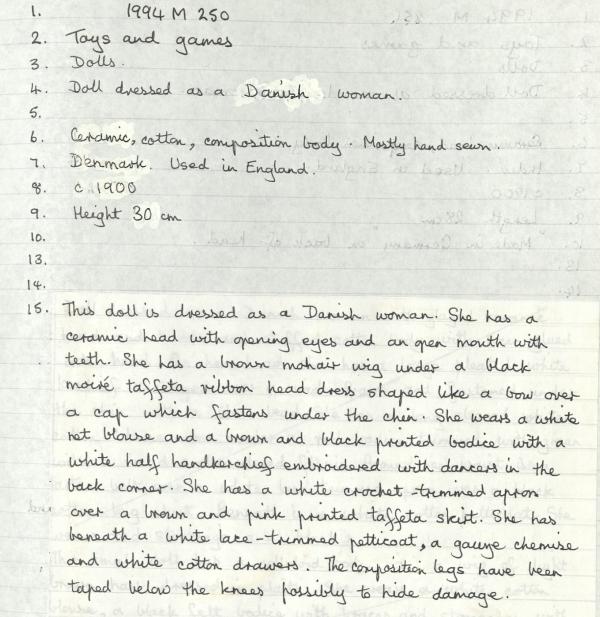 1. 1994 M 250
2. Toys and games
3. Dolls.
4. Doll dressed as a Danish woman.
5.
6. Ceramic, cotton, composition body. Mostly hand sewn.
7. Denmark. Used in England.
8. c 1900
9. Height 30 cm
10.
13.
14.
15. This doll is dressed as a Danish woman. She has a
ceramic head with opening eyes and an open mouth with
teeth. She has a brown mohair wig under a black
moiré taffeta ribbon head dress shaped like a bow over
a cap which fastens under the chin. She wears a white
net blouse and a brown and black printed bodice with a
white half handkerchief embroidered with dancers in the
back corner. She has a white crochet-trimmed apron
over a brown and pink printed taffeta skirt. She has
beneath a white lace-trimmed petticoat, a gauze chemise
and white cotton drawers. The composition legs have been
taped below the knees possibly to hide damage.